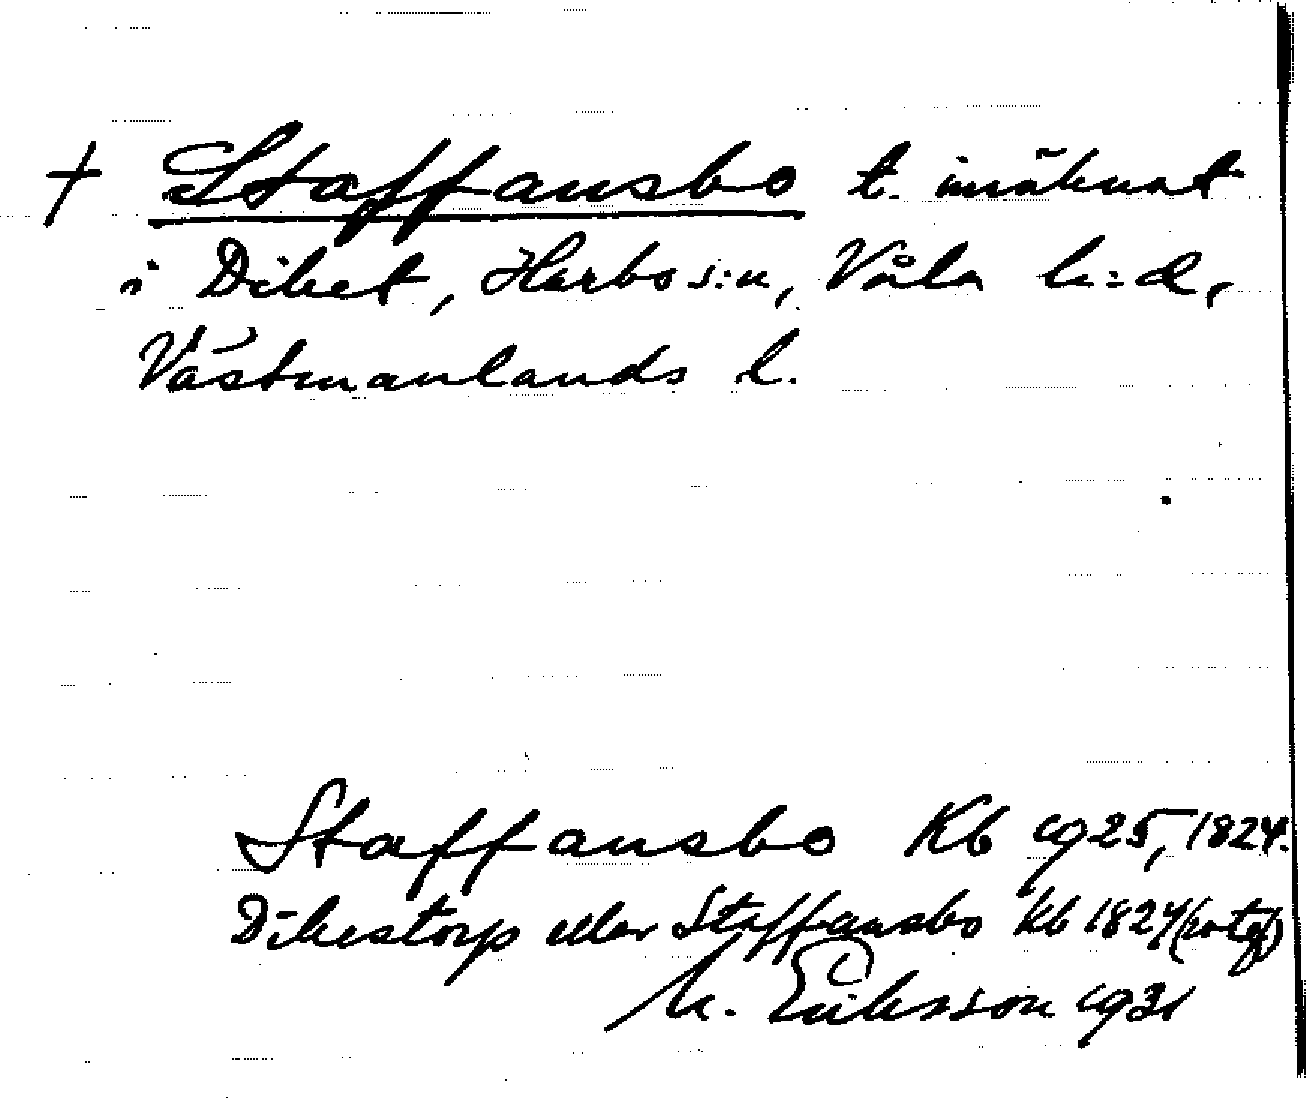 † Staffansbo t. inräknat
i Diket, Harbo s:n, Våla h:d,
Västmanlands l.
Staffansbo Kb 1925, 1824.
Dikestorp eller Staffansbo Kb 1824
M. Eriksson 1931